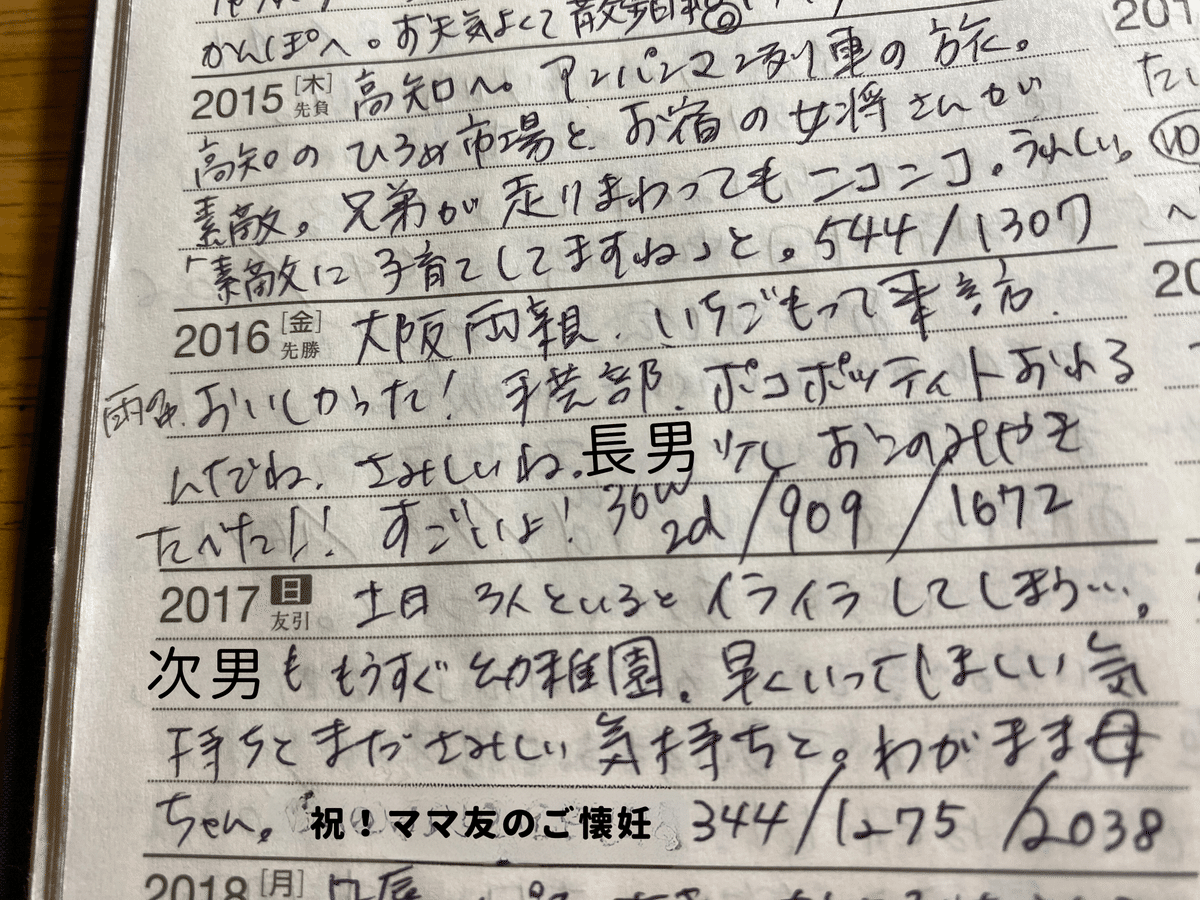 かんぽへ。お天気よくて散歩日和
2015 [木] 先負 高知へ。アンパンマン列車の旅。
高知のひろめ市場と、お宿の女将さんが
素敵。兄弟が走りまわってもニコニコ。うれしい。
「素敵に子育てしてますね」と。544/1307
2016 [金] 先勝 大阪両親、いちごもって来訪。
おいしかった! 手芸部、ポコポッティトおわる
んだね。さみしいね。長男 少し おこのみやき
たべた!! すごいよ! 36w2d/909/1672
2017 日 友引 土日 3人といるとイライラしてしまう…。
次男ももうすぐ幼稚園。早くいってほしい気
持ちとまださみしい気持ちと。わがまま母
ちゃん。祝!ママ友のご懐妊 344/1275/2038
2018 [月]
201
たい
へ
20